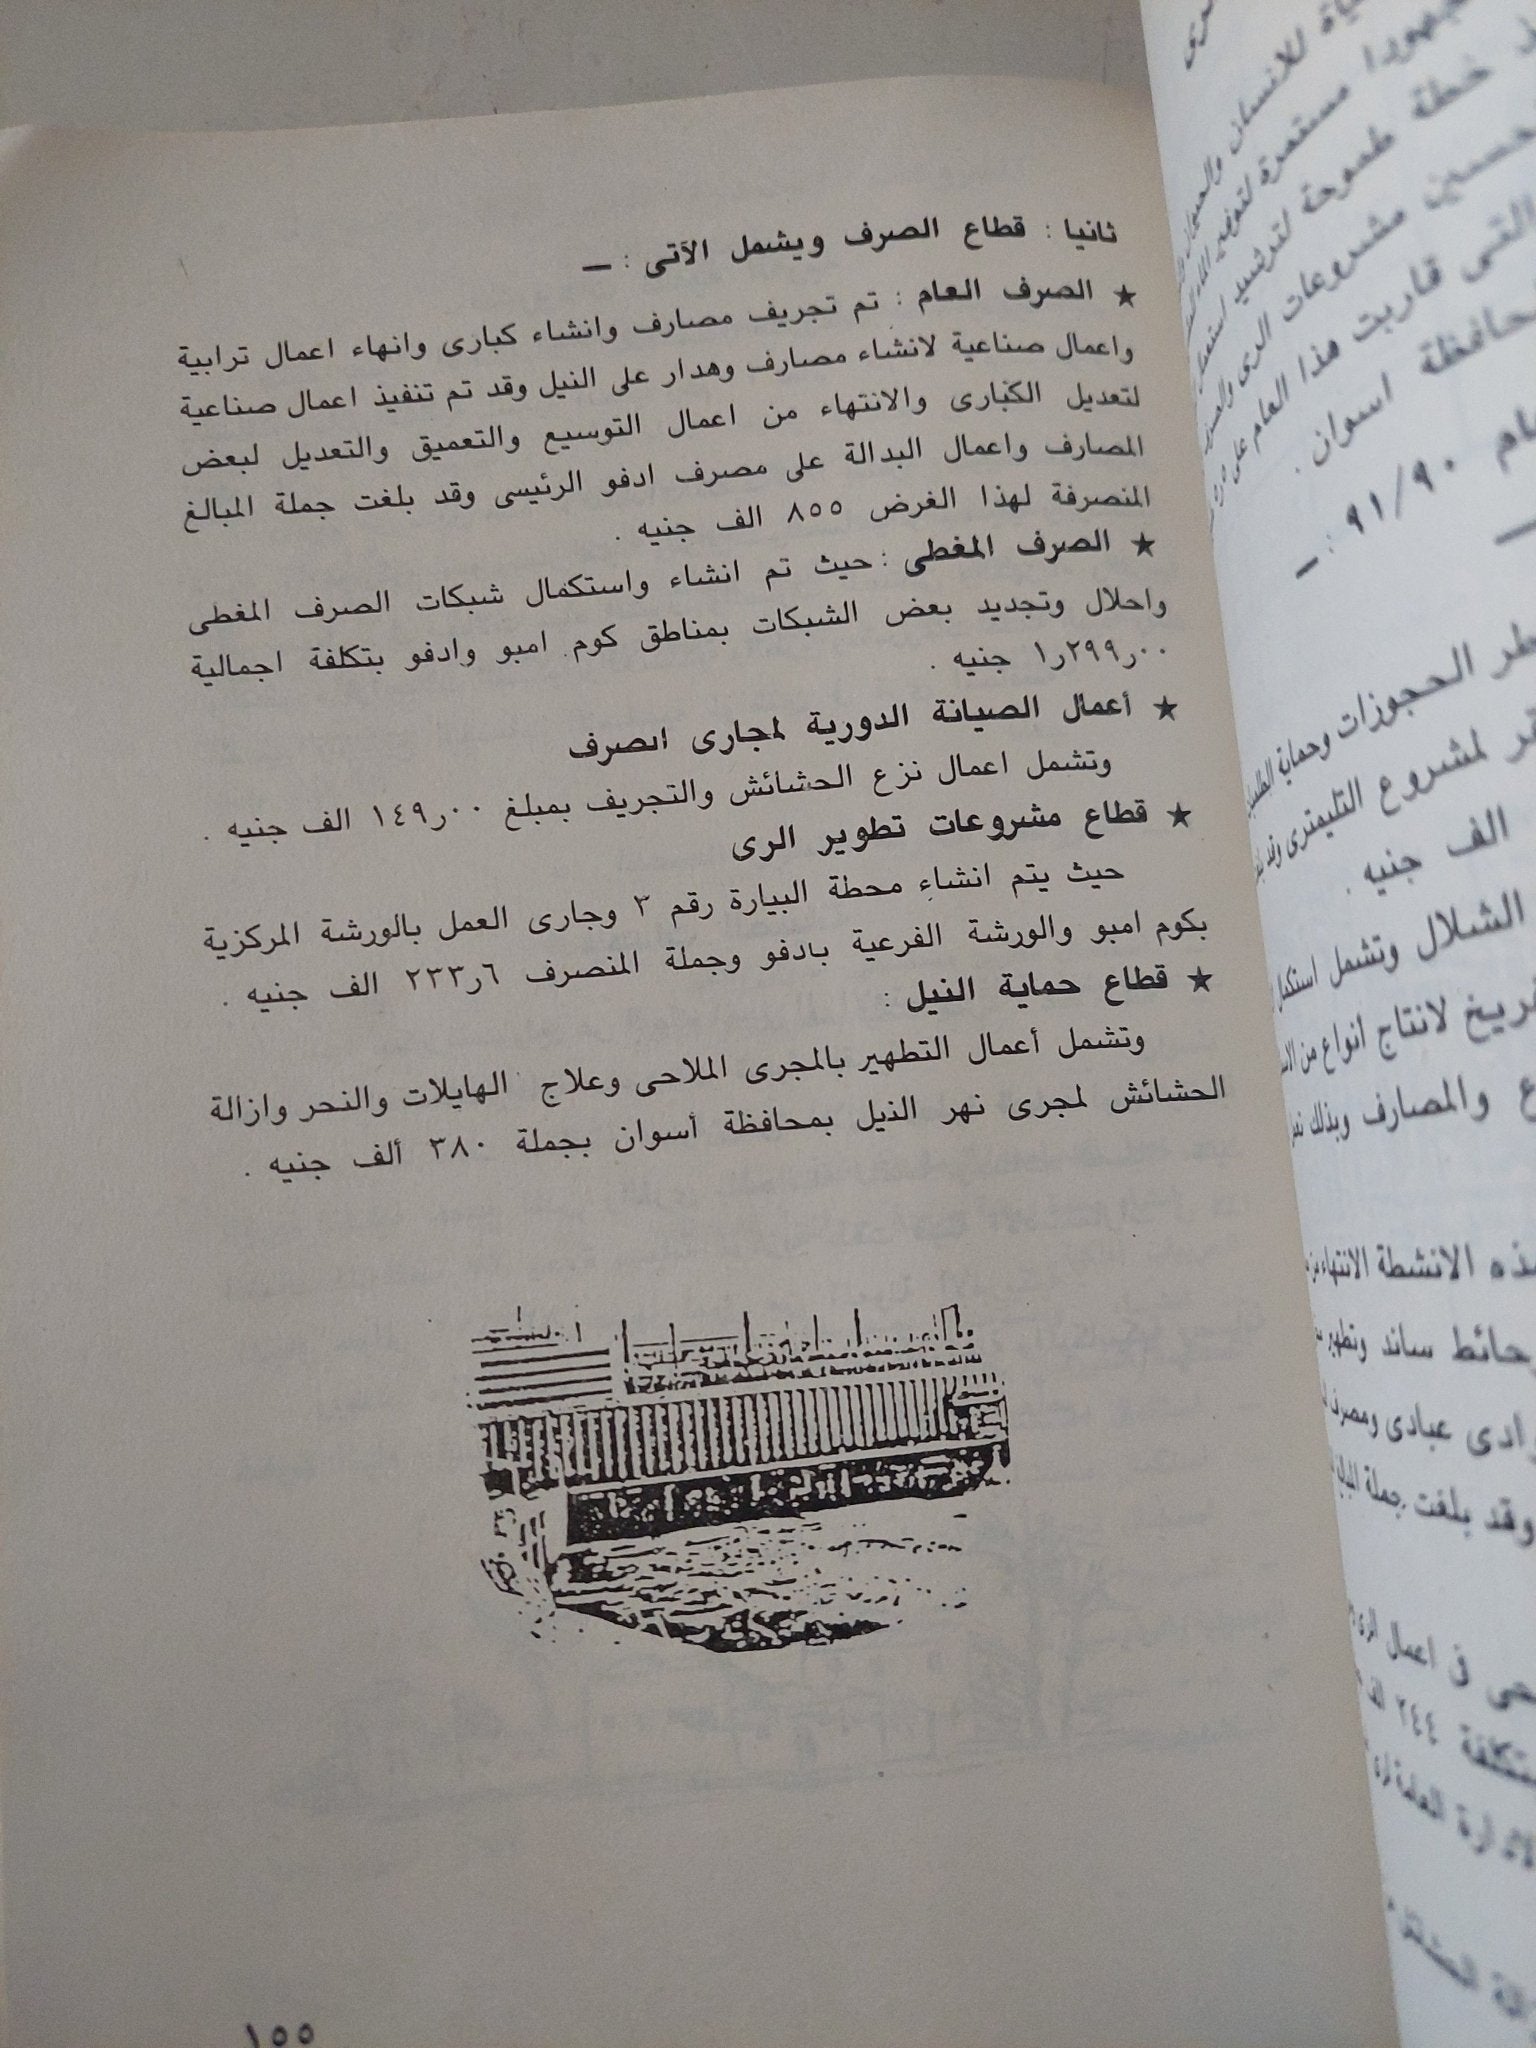 ثانيا : قطاع الصرف ويشمل الآتى : —
★ الصرف العام : تم تجريف مصارف وانشاء كبارى وانهاء اعمال ترابية
واعمال صناعية لانشاء مصارف وهدار على النيل وقد تم تنفيذ اعمال صناعية
لتعديل الكبارى والانتهاء من اعمال التوسيع والتعميق والتعديل لبعض
المصارف واعمال البدالة على مصرف ادفو الرئيسى وقد بلغت جملة المبالغ
المنصرفة لهذا الغرض ٨٥٥ الف جنيه .
★ الصرف المغطى : حيث تم انشاء واستكمال شبكات الصرف المغطى
واحلال وتجديد بعض الشبكات بمناطق كوم امبو وادفو بتكلفة اجمالية
١ر٢٩٩ر٠٠ جنيه .
★ أعمال الصيانة الدورية لمجارى الصرف
وتشمل اعمال نزع الحشائش والتجريف بمبلغ ١٤٩ر٠٠ الف جنيه .
★ قطاع مشروعات تطوير الرى
حيث يتم انشاء محطة البيارة رقم ٣ وجارى العمل بالورشة المركزية
بكوم امبو والورشة الفرعية بادفو وجملة المنصرف ٢٣٣ر٦ الف جنيه .
★ قطاع حماية النيل :
وتشمل أعمال التطهير بالمجرى الملاحى وعلاج الهايلات والنحر وازالة
الحشائش لمجرى نهر الذيل بمحافظة أسوان بجملة ٣٨٠ ألف جنيه .
١٥٥
للانسان
مستمرة
خطة طموحة لترشيد
مشروعات الرى
التى قاربت هذا العام على
اسوان .
٩١/٩٠ : —
الحجوزات وحماية
لمشروع التليمترى وقد
الف جنيه .
الشلال وتشمل استكمال
لانتاج انواع من
والمصارف وبذلك
الانشطة الانتهاء
حائط ساند وتطهير
عبادى ومصرف
وقد بلغت جملة
فى اعمال الرى
٢٤٤ الف
العامة